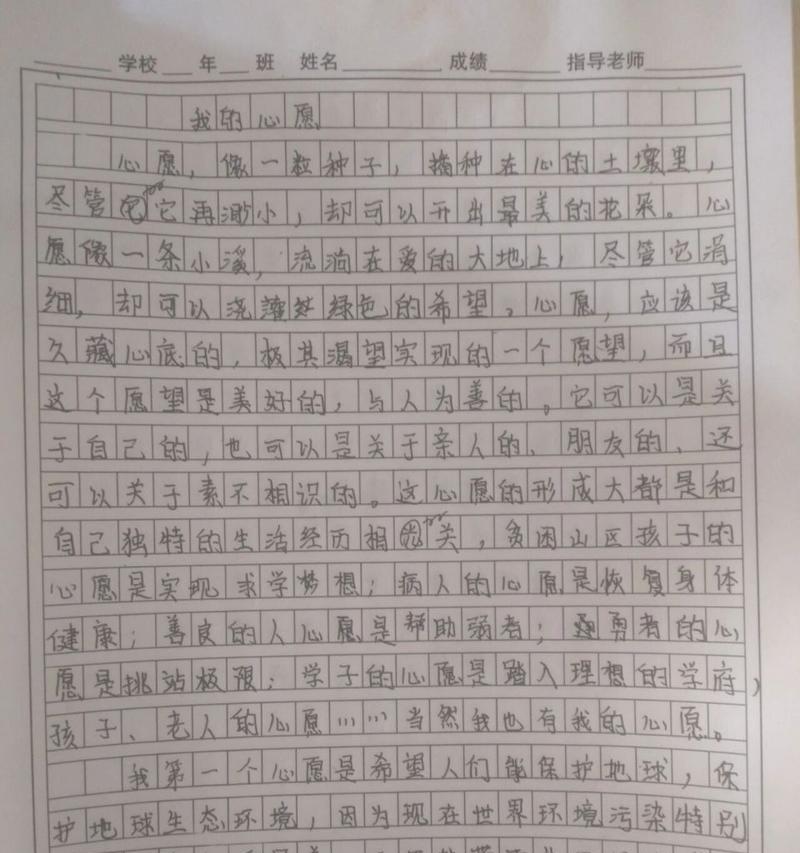 学校 年 班 姓名 成绩 指导老师
我的心愿
心愿，像一粒种子，播种在心的土壤里，
尽管它再渺小，却可以开出最美的花朵。心
愿像一条小溪，流淌在爱的大地上，尽管它涓
细，却可以浇灌绿色的希望。心愿，应该是
久藏心底的，极其渴望实现的一个愿望，而且
这个愿望是美好的，与人为善的。它可以是关
于自己的，也可以是关于亲人的、朋友的、还
可以关于素不相识的。这心愿的形成大都是和
自己独特的生活经历相关，贫困山区孩子的
心愿是实现求学梦想；病人的心愿是恢复身体
健康；善良的人心愿是帮助弱者；勇者的心
愿是挑站极限；学子的心愿是踏入理想的学府，
孩子、老人的心愿……当然我也有我的心愿。
我第一个心愿是希望人们能保护地球，保
护地球生态环境，因为现在世界环境污染特别